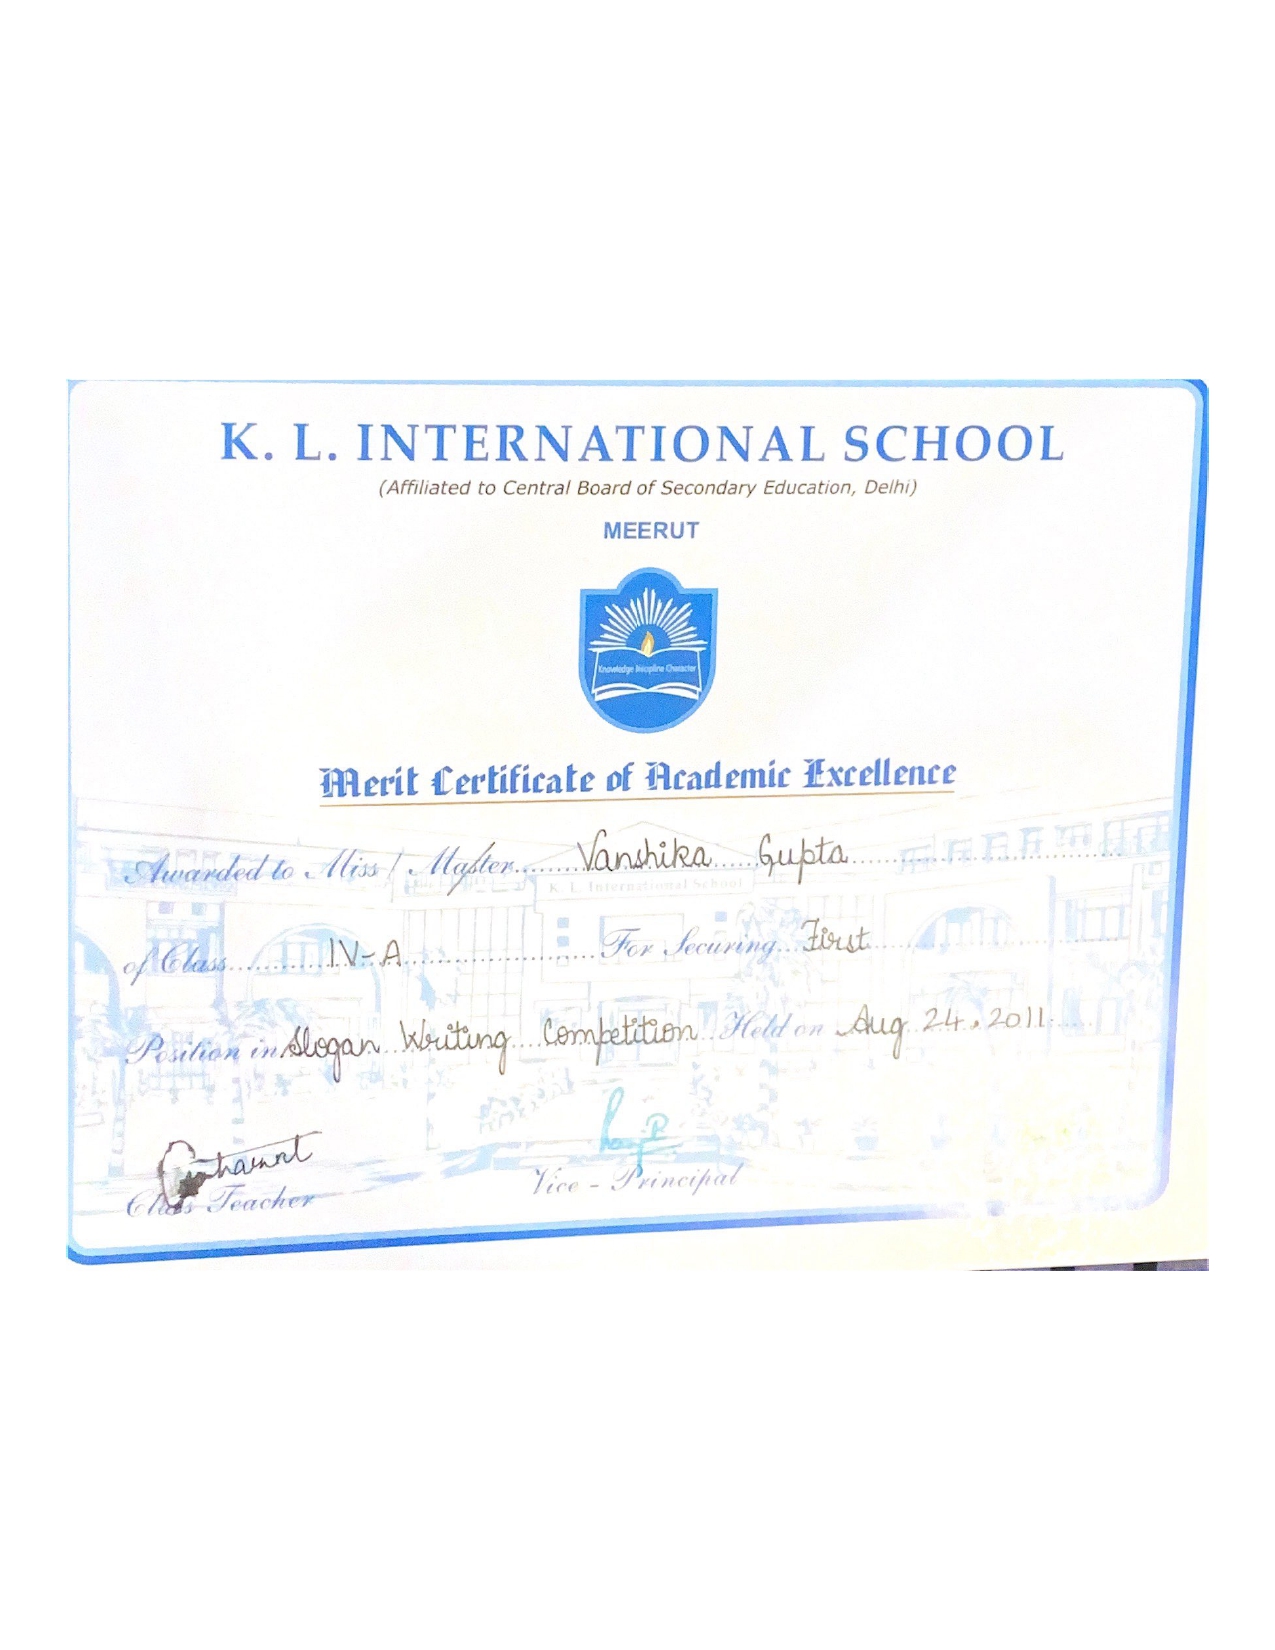 K. L. INTERNATIONAL SCHOOL
(Affiliated to Central Board of Secondary Education, Delhi)
MEERUT
Knowledge Discipline Character
Merit Certificate of Academic Excellence
Awarded to Miss / Master Vanshika Gupta
K. L. International School
of Class IV-A For Securing First
Position in Slogan Writing Competition Held on Aug 24, 2011
Class Teacher Vice - Principal